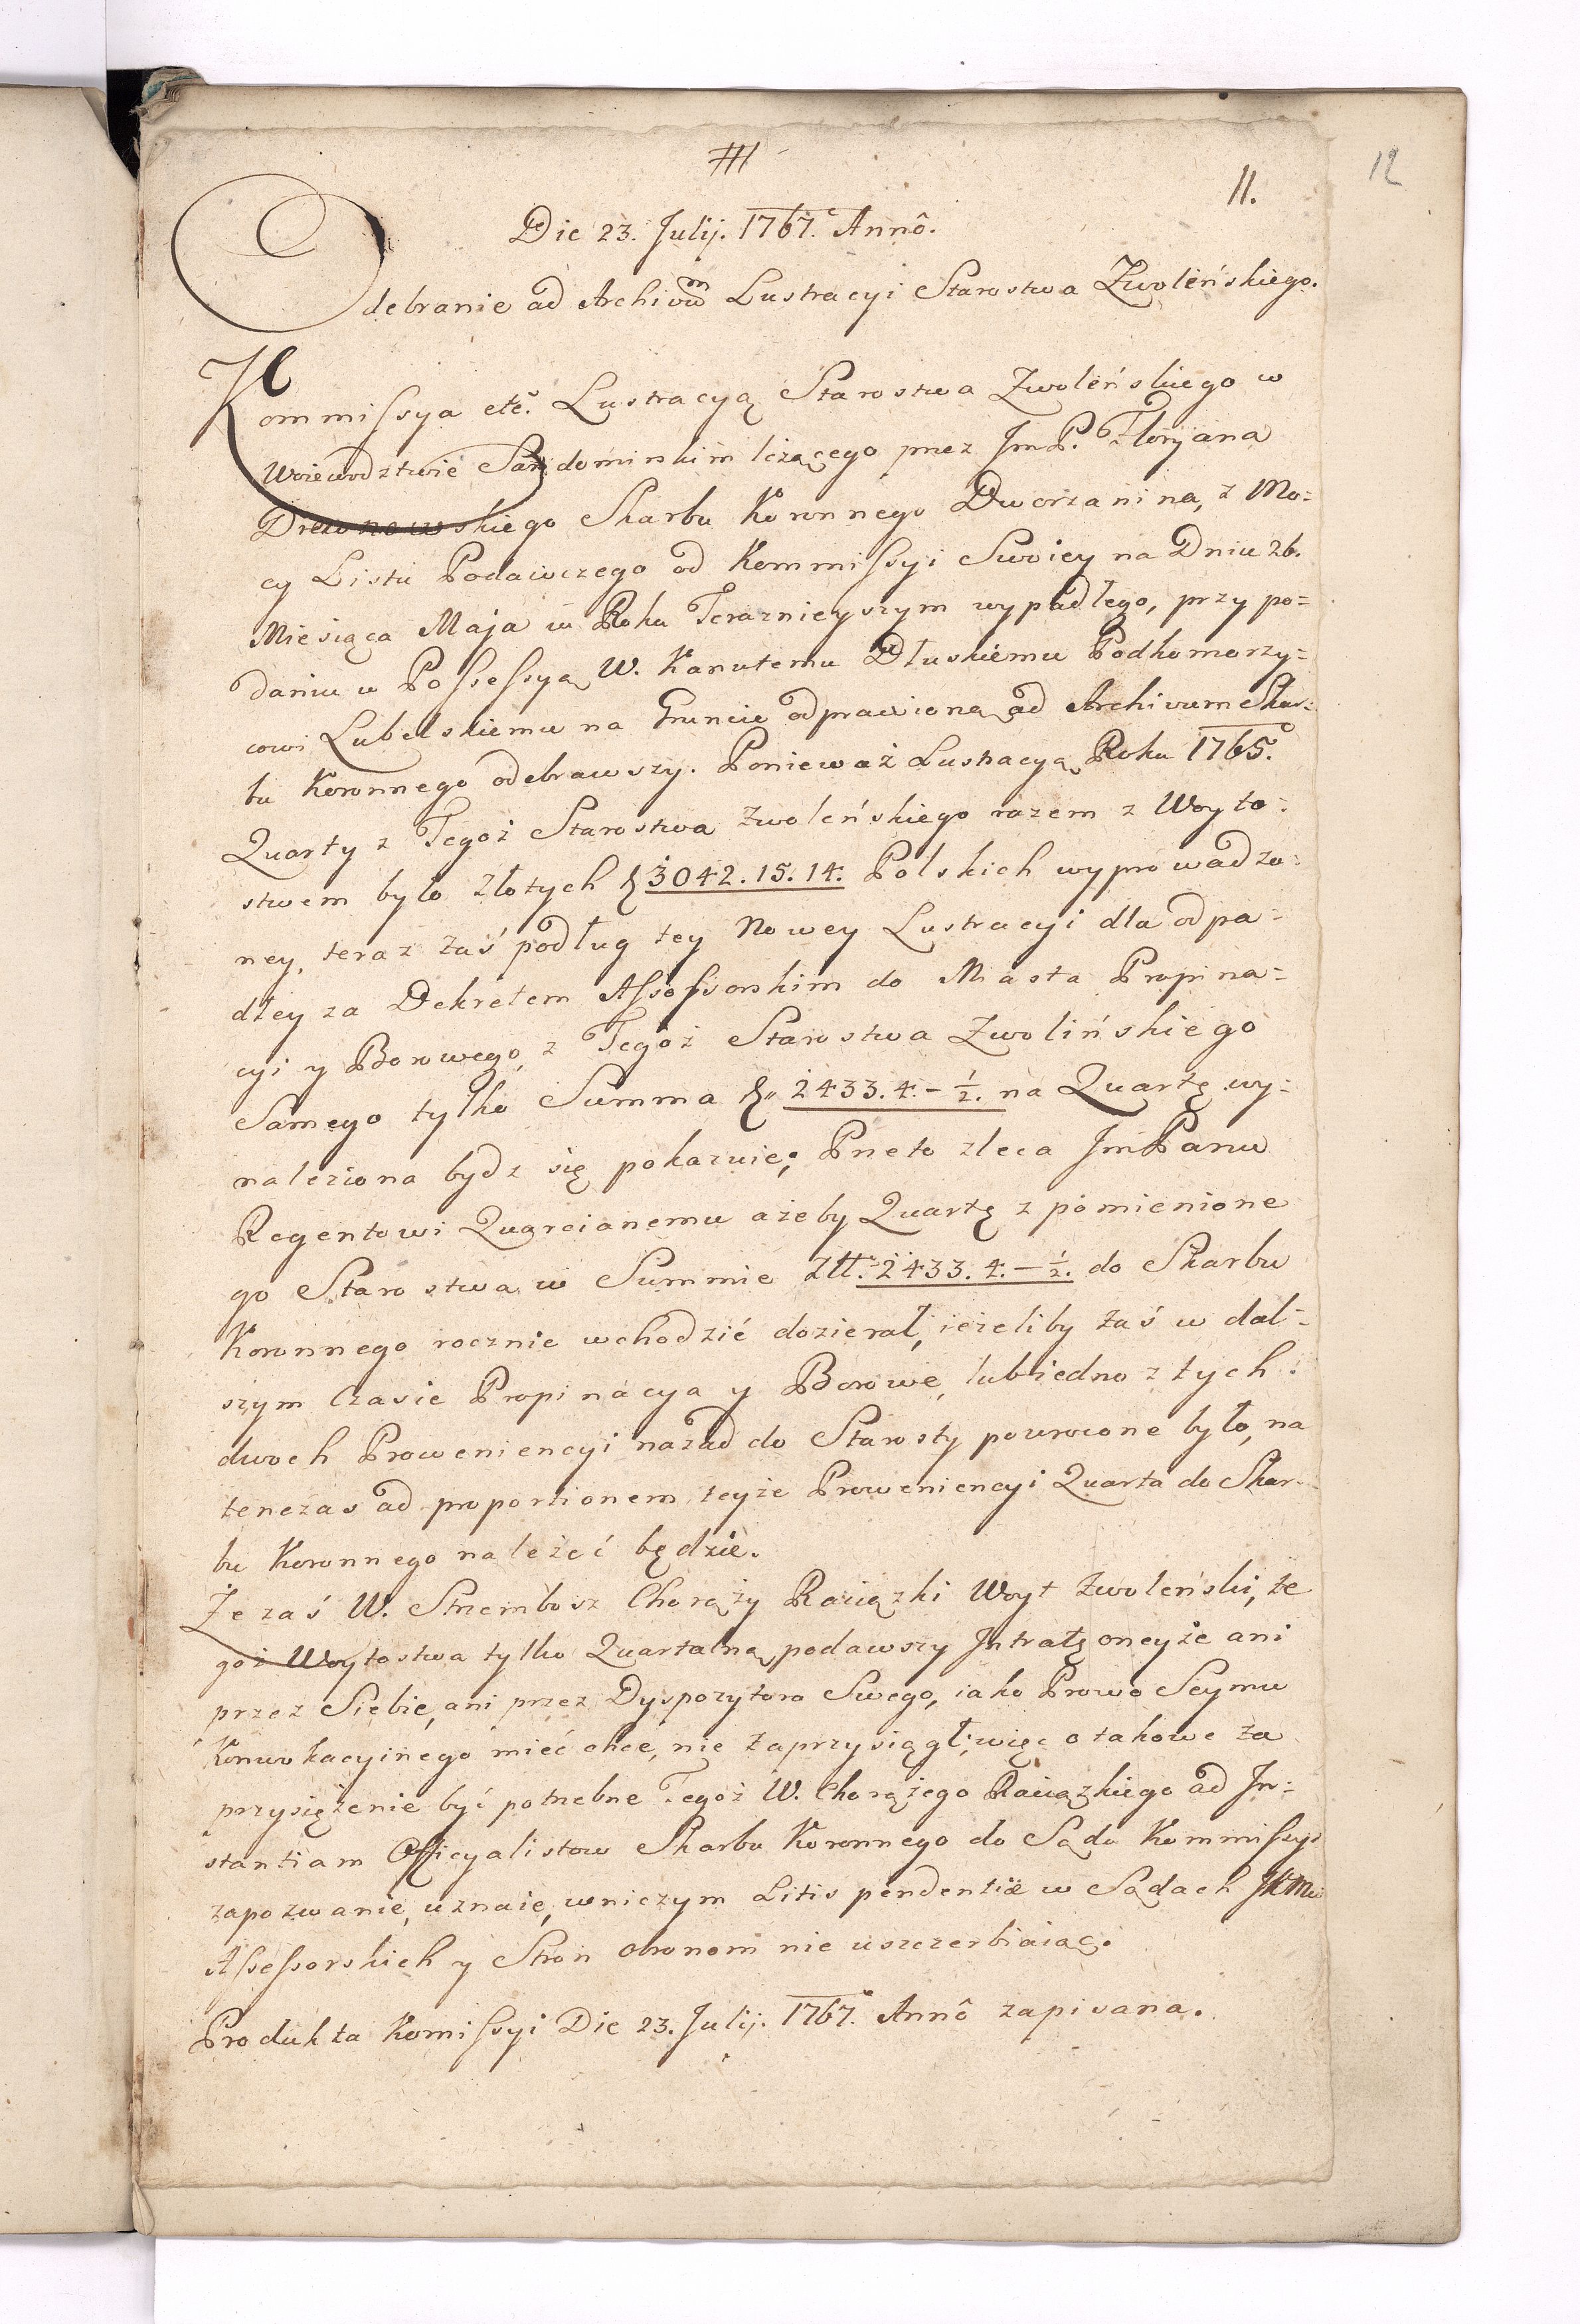 III
11.
12
Die 23. Julij. 1767. Annô.
Odebranie ad Archivum Lustracyi Starostwa Zwoleńskiego.
Kommissya etc. Lustracyą Starostwa Zwoleńskiego w
Woiewodztwie Sandomirskim leżącego przez JmP. Floryana
Drewnowskiego Skarbu Koronnego Dworzanina, z Mo=
cy Listu Podawczego od Kommissyi Swoiey na Dniu 26.
Miesiąca Maja w Roku Terazniejszym wypadłego, przy po=
daniu w Possessyą W. Kanutemu Dłuskiemu Podkomorzy=
cowi Lubelskiemu na Gruncie odprawioną ad Archivum Skar=
bu Koronnego odebrawszy. Ponieważ Lustracyą Roku 1765.
Quarty z Tegoż Starostwa Zwoleńskiego razem z Woyto=
stwem było Złotych 3042.15.14. Polskich wyprowadzo=
ney, teraz zaś podług tey Nowey Lustracyi dla odpa=
dłey za Dekretem Assessorskim do Miasta Propina=
cyi y Borowego, z Tegoż Starostwa Zwolińskiego
Samego tylko Summa 2433.4.-½. na Quartę wy=
naleziona bydz się pokazuie; Prze­to zleca JmPanu
Regentowi Quarcianemu ażeby Quartę z pomienione
go Starostwa w Summie Złł. 2433.4.-½. do Skarbu
Koronnego rocznie wchodzić dozierał, ieżeliby zaś w dal=
szym Czasie Propinacya y Borowe, lub iedno z tych
dwoch Proweniencyi nazad do Starosty powrocone było, na
tenczas ad proportionem teyże Proweniencyi Quarta do Skar=
bu Koronnego należeć będzie.
Że zaś W. Strzembosz Chorąży Raciązki Woyt Zwoleński, te
goż Woytostwa tylko Quartalną podawszy Intratę oneyże ani
przez Siebie, ani przez Dyspozytora Swego, iako Prawo Seymu
Konwokacyinego mieć chce, nie zaprzysiągł; więc o takowe za
przysiężenie być potrzebne Tegoż W. Chorążego Raciązkiego ad In=
stantiam Officyalistow Skarbu Koronnego do Sądu Kommissyi
zapozwanie, uznaie, wniczym Litis pendentiæ w Sądach JKMci
Assessorskich y Stron obronom nie uszczerbiaiąc.
Produkta Komissyi Die 23. Julij. 1767. Annô zapisana.